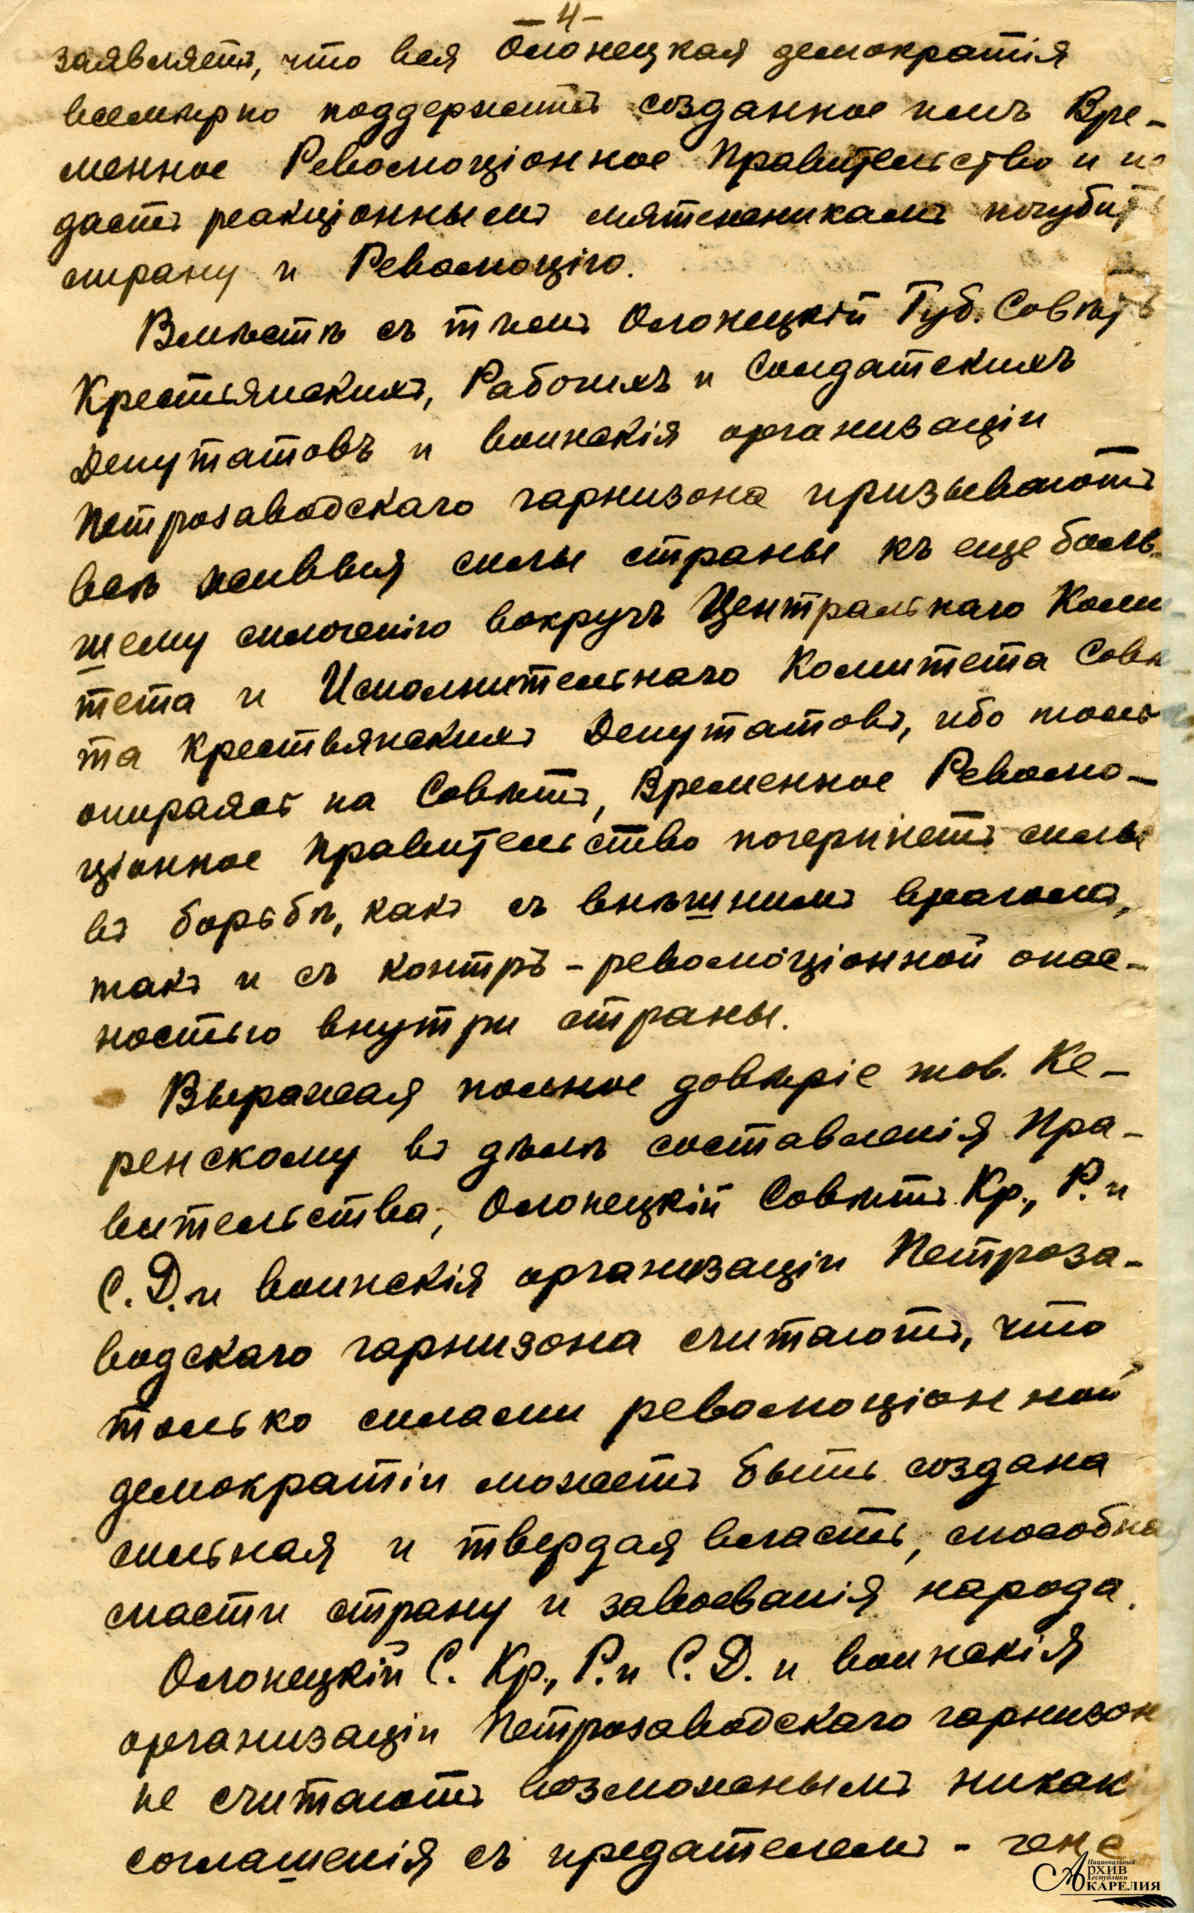 -4-
заявляетъ, что вся Олонецкая демократія
всемѣрно поддержитъ созданное имъ Вре-
менное Революціонное Правительство и не
дастъ реакціоннымъ мятежникамъ погубить
страну и Революцію.
Вмѣстѣ съ тѣмъ Олонецкій Губ. Совѣтъ
Крестьянскихъ, Рабочихъ и Солдатскихъ
Депутатовъ и воинскія организаціи
Петрозаводскаго гарнизона призываютъ
всѣ живыя силы страны къ еще боль-
шему сплоченію вокругъ Центральнаго Коми
тета и Исполнительнаго Комитета Совѣ
та Крестьянскихъ Депутатовъ, ибо только
опираясь на Совѣтъ, Временное Револю-
ціонное Правительство почерпнетъ силы
въ борьбѣ, какъ съ внѣшнимъ врагомъ,
такъ и съ контръ-революціонной опас-
ностью внутри страны.
Выражая полное довѣріе тов. Ке-
ренскому въ дѣлѣ составленія Пра-
вительства, Олонецкій Совѣтъ Кр., Р. и
С. Д. и воинскія организаціи Петроза-
водскаго гарнизона считаютъ, что
только силами революціонной
демократіи можетъ быть создана
сильная и твердая власть, способная
спасти страну и завоеванія народа.
Олонецкій С. Кр., Р. и С. Д. и воинскія
организаціи Петрозаводскаго гарнизона
не считаютъ возможнымъ никакія
соглашенія съ предателемъ - гене
Национальный
Архив
Республики
Карелия